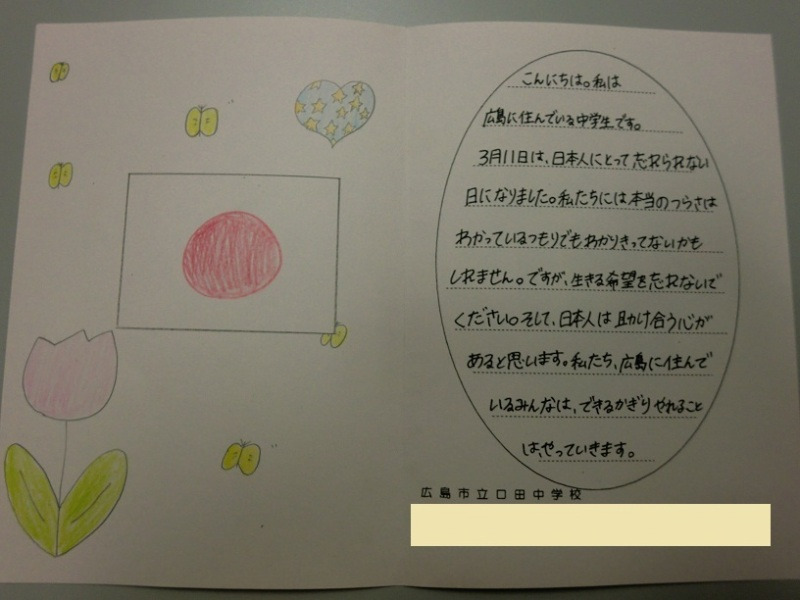 こんにちは。私は
広島に住んでいる中学生です。
3月11日は、日本人にとって忘れられない
日になりました。私たちには本当のつらさは
わかっているつもりでもわかりきってないかも
しれません。ですが、生きる希望を忘れないで
ください。そして、日本人は助け合う心が
あると思います。私たち、広島に住んで
いるみんなは、できるかぎりやれること
は、やっていきます。
広島市立口田中学校